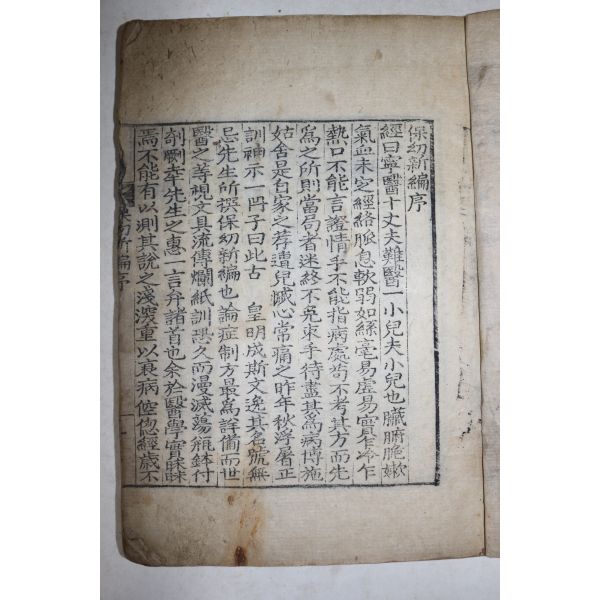 保幼新編序
經曰寧醫十丈夫難醫一小兒夫小兒也臟腑脆嫩
氣血未定經絡脈息軟弱如絲毫易虛易實乍冷乍
熱口不能言證情手不能指病處苟不考其方而先
爲之所則當局者迷終不免束手待盡其爲病博施
姑舍是自家之荐遭兒慽心常痛之昨年秋浮屠正
訓神示一冊子曰此古 皇明成斯文逸其名號無
忌先生所撰保幼新編也論症制方最爲詳備而世
醫之等視文具流傳爛紙訓恐久而漫滅蕩甁鉢付
剞劂幸先生之惠一言弁諸首也余於醫學實昧昧
焉不能有以測其說之淺深重以衰病倥傯經歲不
保幼新編序